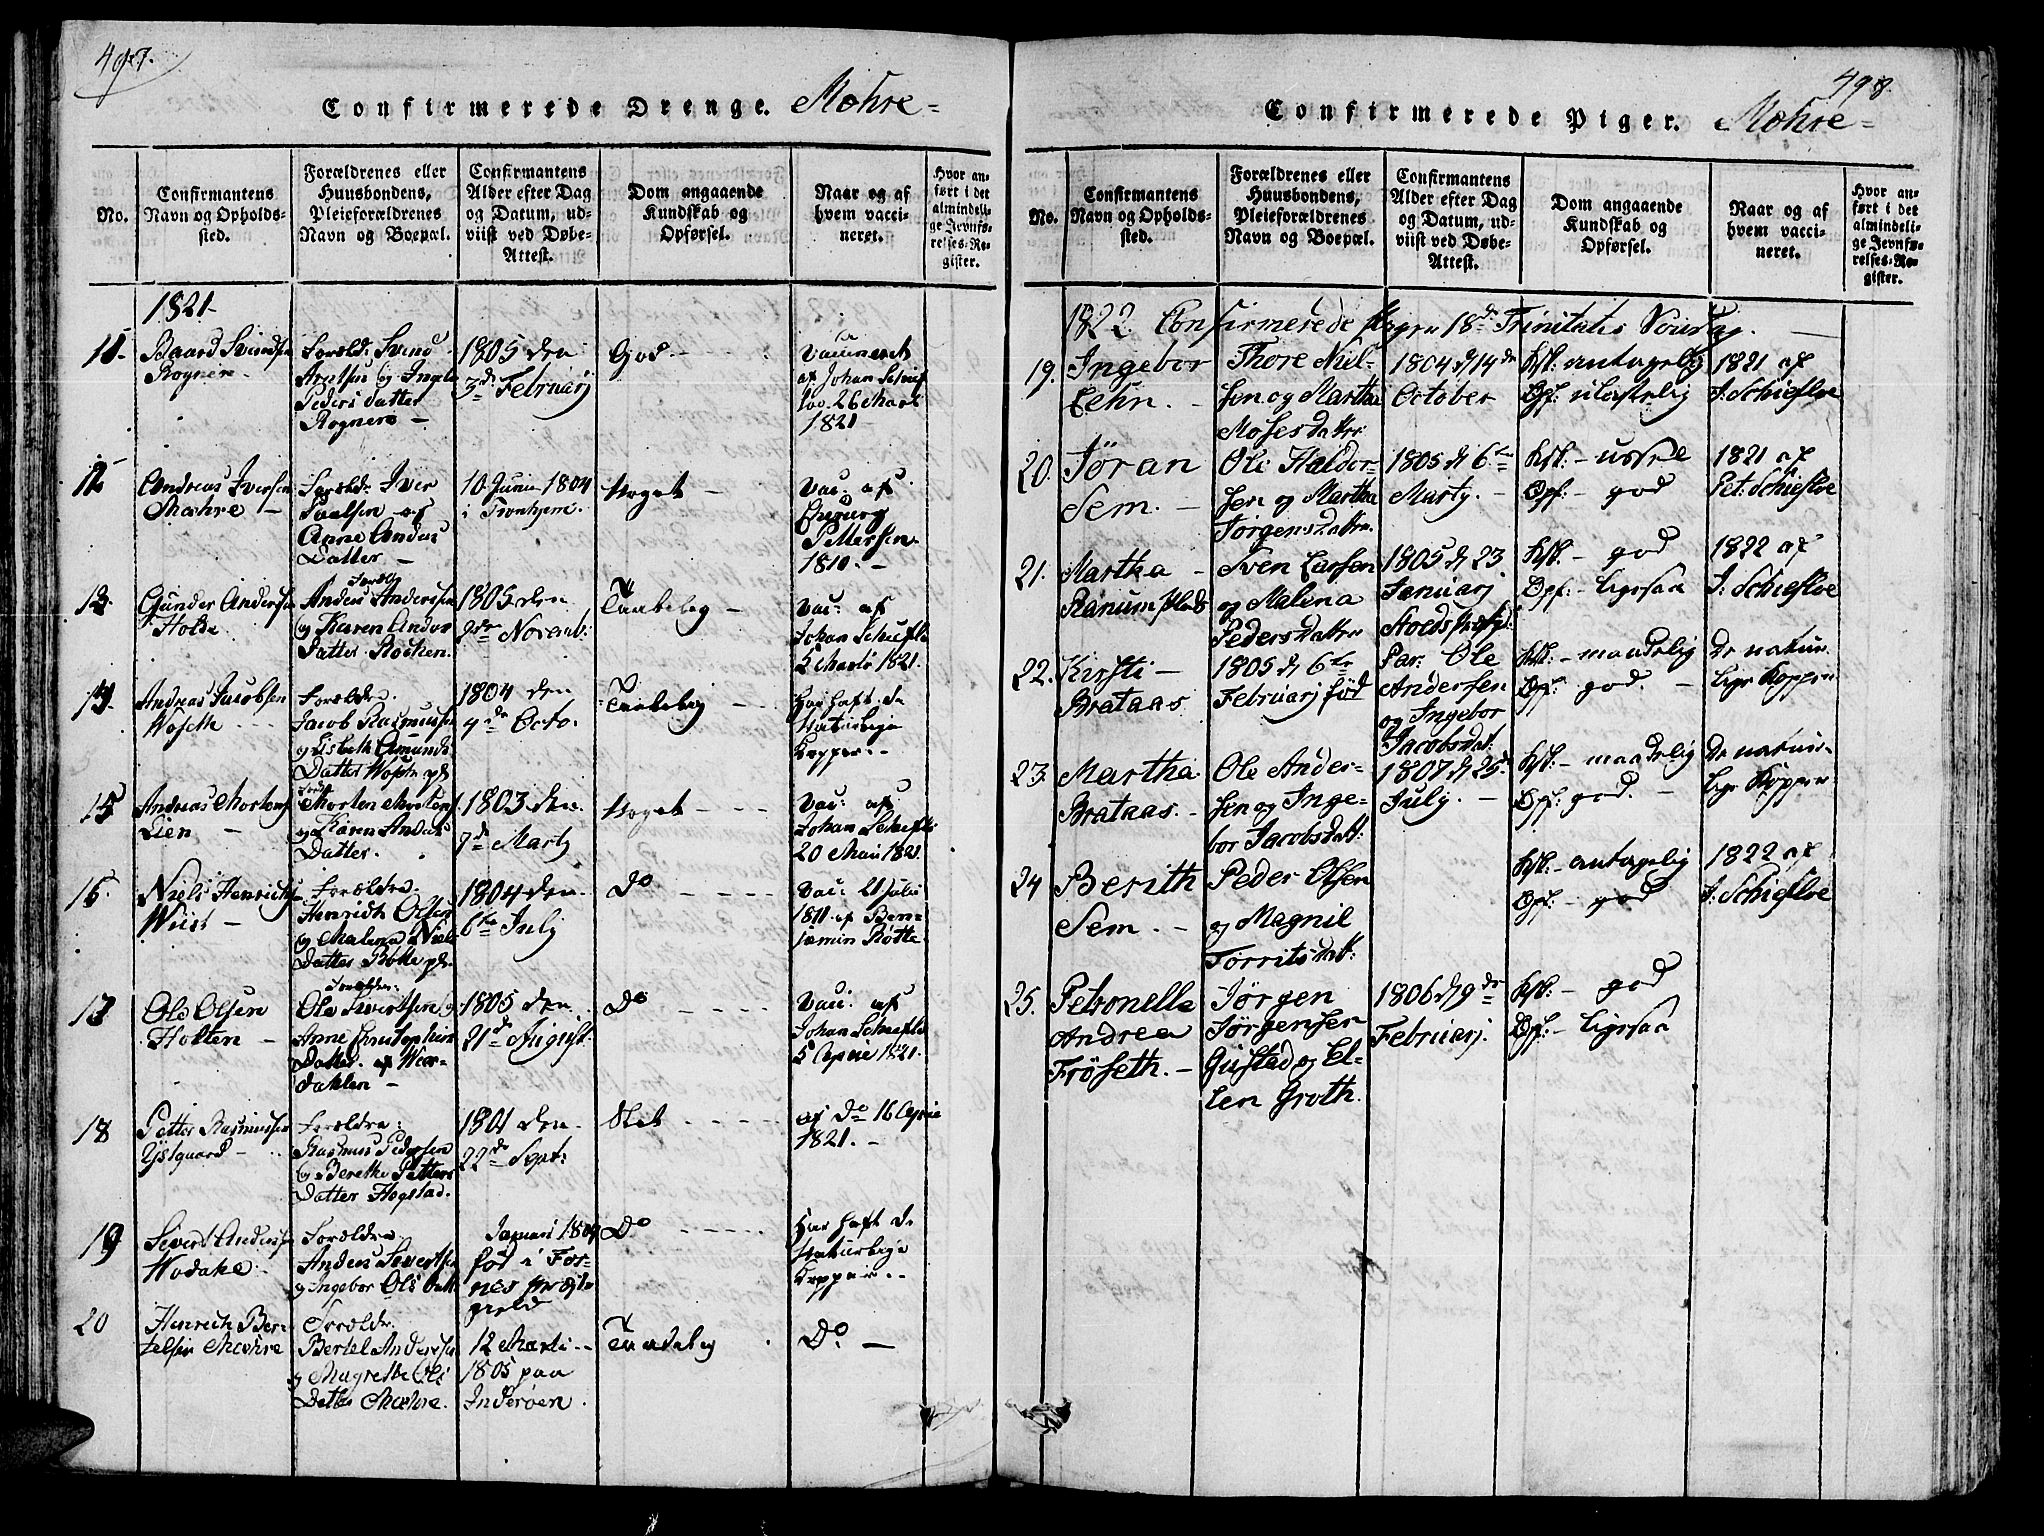 497.
Confirmerede Drenge. Mæhre-
No.
Confirmantens
Navn og Opholds-
sted.
Forældrenes eller
Huusbondens,
Pleieforældrenes
Navn og Boepæl.
Confirmantens
Alder efter Dag
og Datum, ud-
viist ved Døbe-
Attest.
Dom angaaende
Kundskab og
Opførsel.
Naar og af
hvem vacci-
neret.
Hvor an-
ført i det
almindeli-
ge Jevnfø-
relses-Re-
gister.
1821
11.
Baard Svendsen
Rognere
Foræld: Svend
Arntsen og Ingebor
Peders datter
Rognere
1805 den
3de Februarj
God
Vaccineret
af Johan Schief
lov. 26 Mart
1821
12
Andreas Iversen
Mæhre
Foræld: Iver
Paulsen og
Anne Anders
Datter
10 Junii 1804
i Tronhjem.
Noget
Vac: af
Chirurg
Pettersen
1810.
13.
Gunder Andersen
Holde
Foræld
Anders Andersen
og Karen Anders
Datter Rochen.
1805 den
9de Novemb:
Taalelig
Vac: af
Johan Schieflo
5 Marti 1821.
14.
Andreas Jacobsen
Woseth
Forældre.
Jacob Rasmussen
og Lisbeth Amunds
Datter Woseth pl.
1804 den
4de Octo.
Taalelig
Har haft de
Naturlige
Kopper.
15
Andreas Mortens
Lien
Morten Mortens.
og Karen Anders
Datter.
1803 den
7de Martj
Noget
Vac: af
Johan Schieflo
20 Mai 1821.
16.
Niels Henrichs
Wiist
Forældre.
Henrich Olsen
og Malena Niels
Datter Bolle pl.
1804 den
6te Julj
Do
Vac: 21 Julii
1811 af Ben-
jamin Røtte.
17
Ole Olsen
Holten
Forældre:
Ole Sivertsen og
Anne Christophers
Datter af Wær-
dahlen
1805 den
21de August.
Do
Vac: af
Johan Schieflo
5 Aprie 1821.
18
Petter Rasmussen
Ystgaard
Forældre:
Rasmus Pedersen
og Berethe Petters
Datter Hogstad.
1801 den
22de Sept:
Slet
af Do 16 Aprie
1821.
19
Sivert Andersen
Wodake
Forældre
Anders Sivertsen
og Ingebor Ols Datt.
Januari 1804
fød i Fos-
nes præste
gield
Do
Har haft de
Naturlige
Kopper
20
Henrich Ber-
telsen Mæhre
Forældr.
Bertel Andersen
og Magrethe Ols
Datter Mæhre.
12 Marti
1805 paa
Inderøen.
Taalelig
Do
498.
Confirmerede Piger. Mæhre-
No.
Confirmantens
Navn og Opholds-
sted.
Forældrenes eller
Huusbondens,
Pleieforældrenes
Navn og Boepæl.
Confirmantens
Alder efter Dag
og Datum, ud-
viist ved Døbe-
Attest.
Dom angaaende
Kundskab og
Opførsel.
Naar og af
hvem vacci-
neret.
Hvor an-
ført i det
almindeli-
ge Jevnfø-
relses-Re-
gister.
1822 Confirmerede Piger 18de Trinitatis Søndag.
19.
Ingebor
Lehn.
Thore Niel-
sen og Martha
Mosesdatter
1804 d 14de
October
Kst: antagelig
Opf: ulastelig
1821 af
J: Schiefloe
20.
Jøran
Sem.
Ole Haldor-
sen og Martha
Jørgensdatter.
1805 d 6te
Martj.
Kst: - ussel
Opf: - god
1821 af
Pet: Schiefloe
21.
Martha
Ranum plads
Sven Larsen
og Malena
Pedersdatter
1805 d 23
Januarj
Kst: - god
Opf: - ligesaa
1822 af
J: Schiefloe
22.
Kirsti
Brataas
1805 d 6te
Februarj fød
Stoeds præstgl:
Par: Ole
Andersen
og Ingebor
Jacobsdat:
Kst: - maadelig
Opf: god.
De natur-
lige Kopper
23
Martha
Brataas.
Ole Ander-
sen og Inge-
bor Jacobsdatt:
1807 d 25.
July.
Kst: - maadelig
Opf: god.
De natur-
lige Kopper
24
Berith
Sem.
Peder Olsen
og Magnil
Torritsdatt:
Kst: - antagelig
Opf: - god
1822 af
J: Schiefloe
25.
Petronella
Andrea
Frøseth.
Jørgen
Jørgensen
Gustad og El-
len Groth.
1806 d 9de
Februarj.
Kst: - god
Opf: - ligesaa